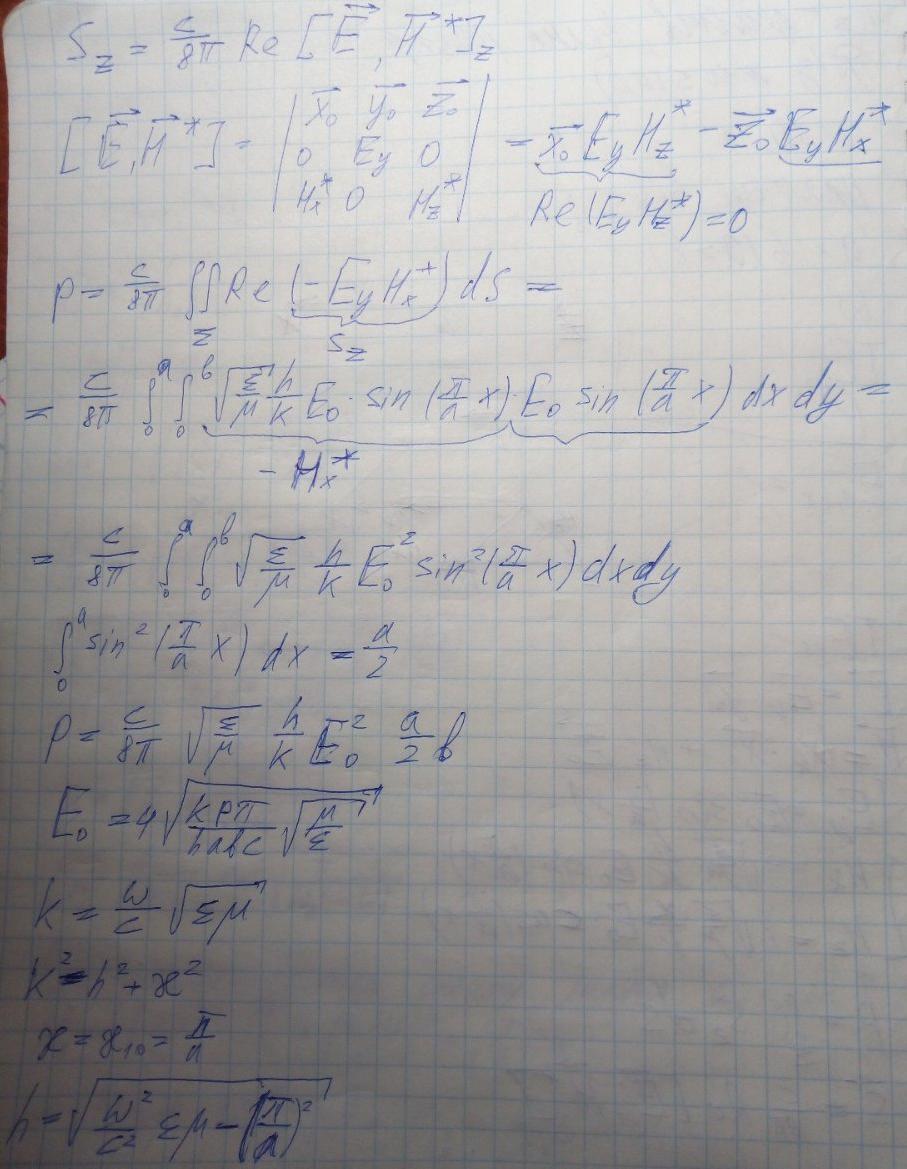 S_z = c/8π Re [E⃗, H⃗*]_z
[E⃗, H⃗*] = | x⃗₀ y⃗₀ z⃗₀ |
| 0 E_y 0 |
| H_x* 0 H_z* | = x⃗₀ E_y H_z* − z⃗₀ E_y H_x*
Re(E_y H_z*) = 0
P = c/8π ∬_Σ Re (−E_y H_x*) dS =
S_z
= c/8π ∫₀^a ∫₀^b √(ε/μ) h/k E₀ · sin (π/a x) · E₀ sin (π/a x) dx dy =
− H_x*
= c/8π ∫₀^a ∫₀^b √(ε/μ) h/k E₀² sin² (π/a x) dx dy
∫₀^a sin² (π/a x) dx = a/2
P = c/8π √(ε/μ) h/k E₀² a/2 b
E₀ = 4 √(kPπ/habc √(μ/ε))
k = ω/c √(εμ)
k² = h² + æ²
æ = æ₁₀ = π/a
h = √(ω²/c² εμ − (π/a)²)